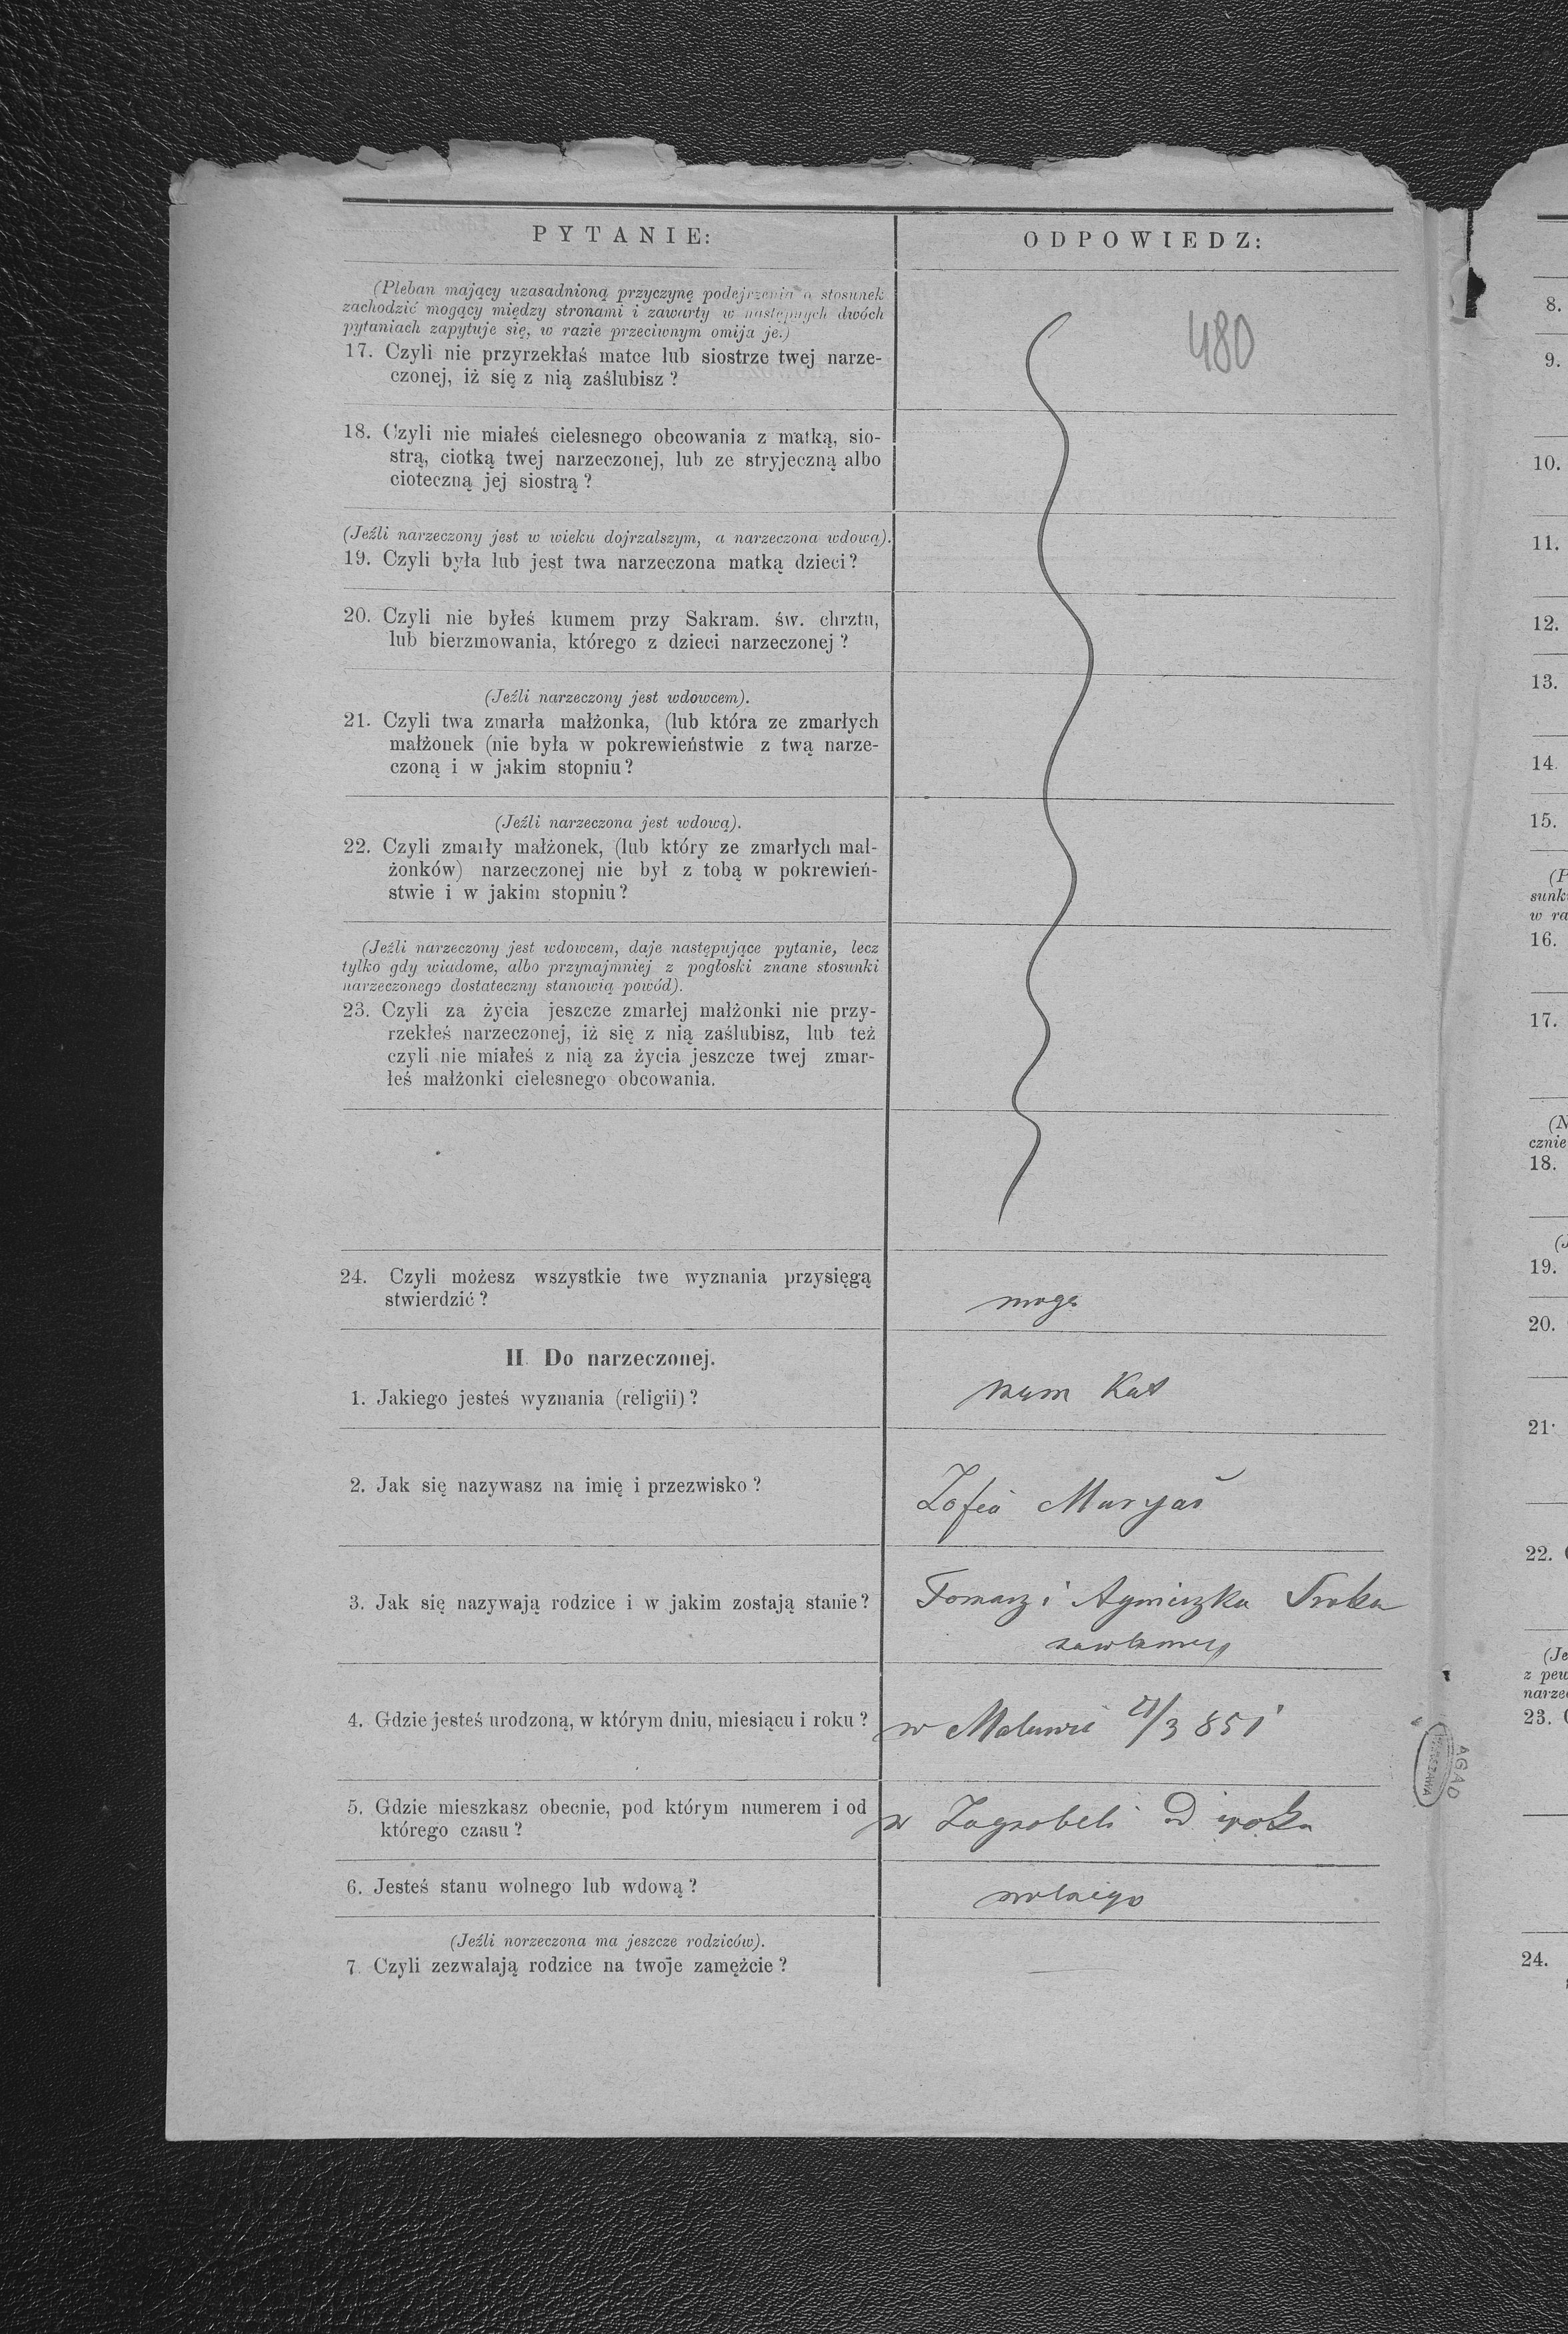 PYTANIE:
ODPOWIEDZ:
(Pleban mający uzasadnioną przyczynę podejrzenia o stosunek
zachodzić mogący między stronami i zawarty w następnych dwóch
pytaniach zapytuje się, w razie przeciwnym omija je.)
480
17. Czyli nie przyrzekłaś matce lub siostrze twej narze-
czonej, iż się z nią zaślubisz?
18. Czyli nie miałeś cielesnego obcowania z matką, sio-
strą, ciotką twej narzeczonej, lub ze stryjeczną albo
cioteczną jej siostrą?
(Jeźli narzeczony jest w wieku dojrzalszym, a narzeczona wdową).
19. Czyli była lub jest twa narzeczona matką dzieci?
20. Czyli nie byłeś kumem przy Sakram. św. chrztu,
lub bierzmowania, którego z dzieci narzeczonej?
(Jeźli narzeczony jest wdowcem).
21. Czyli twa zmarła małżonka, (lub która ze zmarłych
małżonek (nie była w pokrewieństwie z twą narze-
czoną i w jakim stopniu?
(Jeźli narzeczona jest wdową).
22. Czyli zmarły małżonek, (lub który ze zmarłych mał-
żonków) narzeczonej nie był z tobą w pokrewień-
stwie i w jakim stopniu?
(Jeźli narzeczony jest wdowcem, daje następujące pytanie, lecz
tylko gdy wiadome, albo przynajmniej z pogłoski znane stosunki
narzeczonego dostateczny stanowią powód).
23. Czyli za życia jeszcze zmarłej małżonki nie przy-
rzekłeś narzeczonej, iż się z nią zaślubisz, lub też
czyli nie miałeś z nią za życia jeszcze twej zmar-
łeś małżonki cielesnego obcowania.
24. Czyli możesz wszystkie twe wyznania przysięgą
stwierdzić?
mogę
II. Do narzeczonej.
1. Jakiego jesteś wyznania (religii)?
rzym Kat
2. Jak się nazywasz na imię i przezwisko?
Zofia Maryaś
3. Jak się nazywają rodzice i w jakim zostają stanie?
Tomasz i Agnieszka
4. Gdzie jesteś urodzoną, w którym dniu, miesiącu i roku?
w /3 851
5. Gdzie mieszkasz obecnie, pod którym numerem i od
którego czasu?
w Zagrobeli od roku
6. Jesteś stanu wolnego lub wdową?
wolnego
(Jeźli norzeczona ma jeszcze rodziców).
7. Czyli zezwalają rodzice na twoje zamężcie?
AGAD
WARSZAWA
8.
9.
10.
11.
12.
13.
14.
15.
(P
sunk
w ra
16.
17.
(N
cznie
18.
19.
20.
21.
22.
(Je
z pew
narze
23.
24.